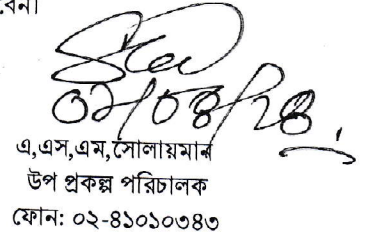 বেন।
এ,এস,এম,সোলায়মান
উপ প্রকল্প পরিচালক
ফোন: ০২-৪১০১০৩৪৩